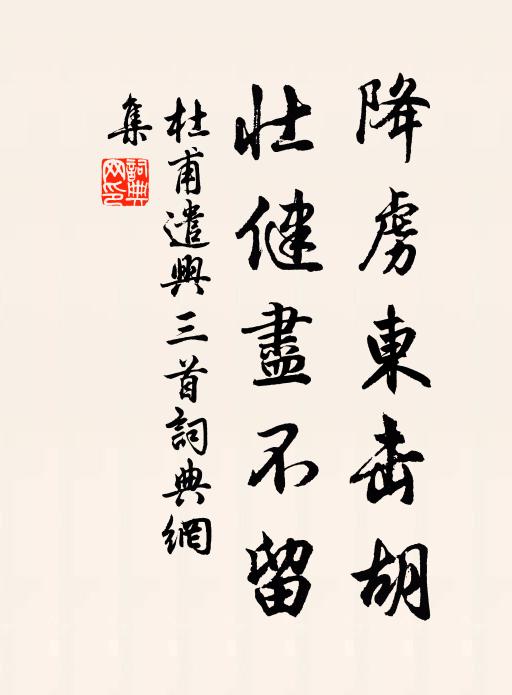 降虜東击胡
壮健盡不留
杜甫遣興三首詞典網
集
詞典網印